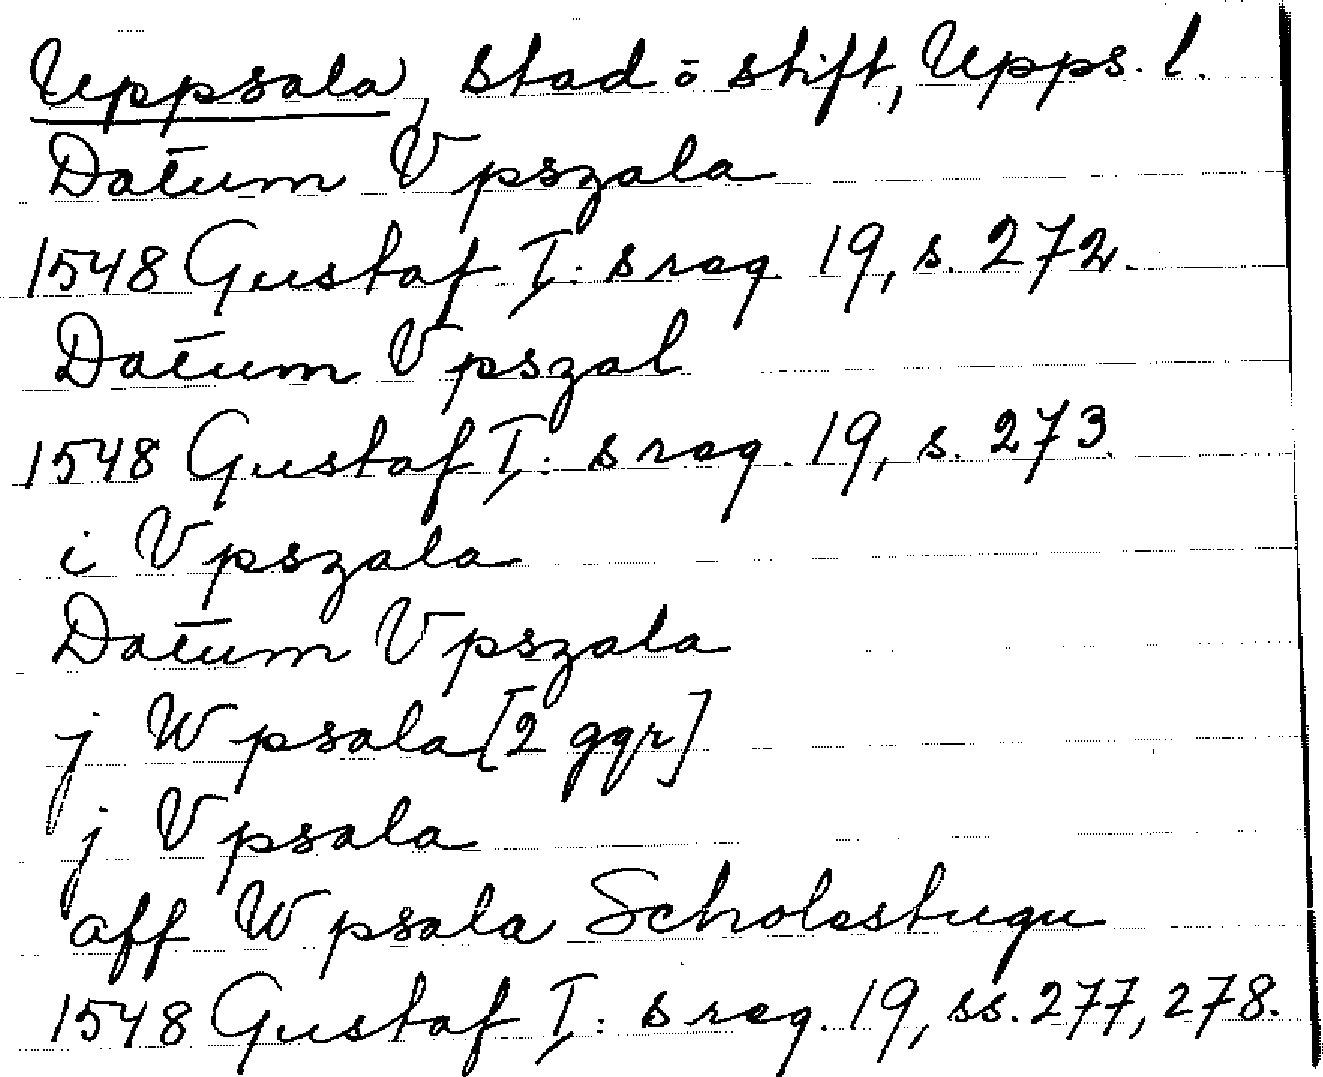 Uppsala, stad o stift, Upps. l.
Datum Vpszala
1548 Gustaf I: s reg 19, s. 272.
Datum Vpszal
1548 Gustaf I: s reg. 19, s. 273.
i Vpszala
Datum Vpszala
j Wpsala [2 ggr]
j Vpsala
aff Wpsala Scholestugu
1548 Gustaf I: s reg. 19, ss. 277, 278.